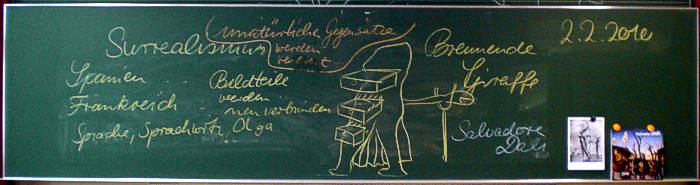 unnatürliche Gegensätze
werden
vereint
Surrealismus
Spanien
Frankreich
Sprache, Sprachwitz, Olga
Bildteile
werden
neu verbunden
Brennende
Giraffe
2.2.2010
Salvadore
Dali